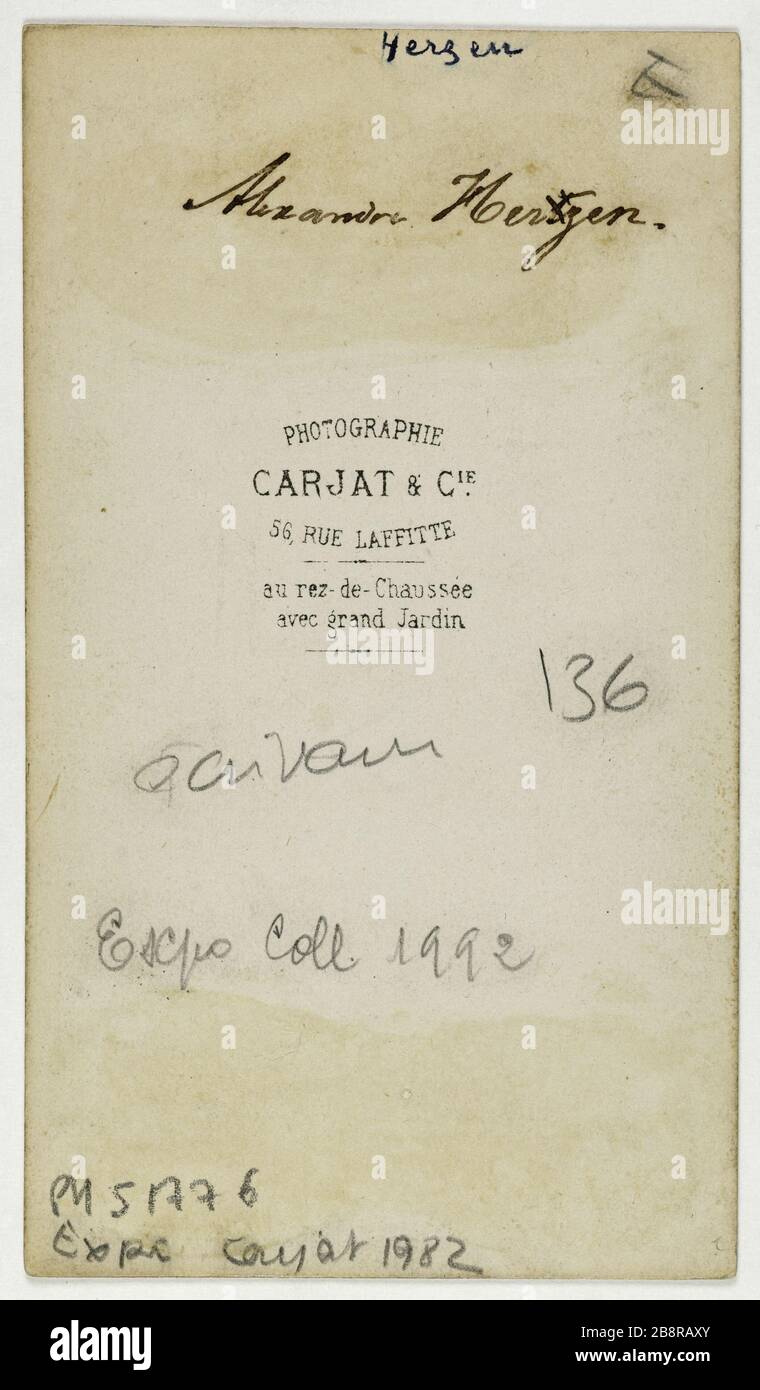 Hergen
Alexandre Hertzen.
PHOTOGRAPHIE
CARJAT & CIE.
56, RUE LAFFITTE
au rez-de-Chaussée
avec grand Jardin
136
écrivain
Expo Coll. 1992
PH 51776
Expo Carjat 1982
alamy
Image ID: 2B8RAXY
www.alamy.com